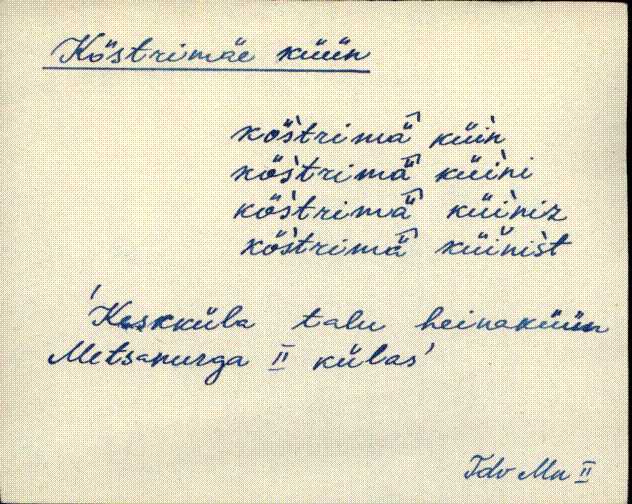 Köstrimäe küün
kös̀trimä̂ küìn
kös̀trimä̂ küìni
kös̀trimä̂ küìniz
kös̀trimä̂ küìnist
'Keskküla talu heinaküün
Metsanurga II külas'
Idv Mn II